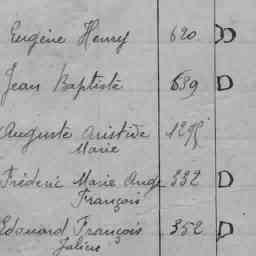 Eugène Henry 620 D
Jean Baptiste 639 D
Auguste Aristide
Marie
Fréderic Marie Ange 332 D
François
Edouard François 352 D
Julien